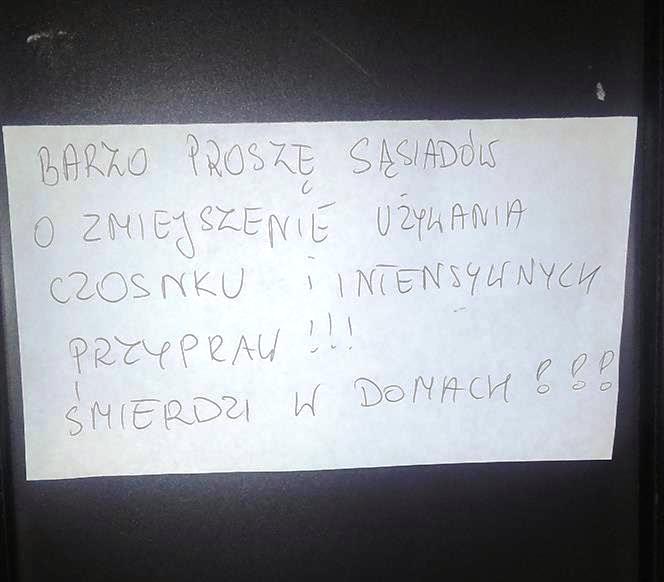 BARZO PROSZĘ SĄSIADÓW
O ZMIEJSZENIE UŻYWANIA
CZOSNKU i INTENSYWNYCH
PRZYPRAW !!!
ŚMIERDZI W DOMACH !!!